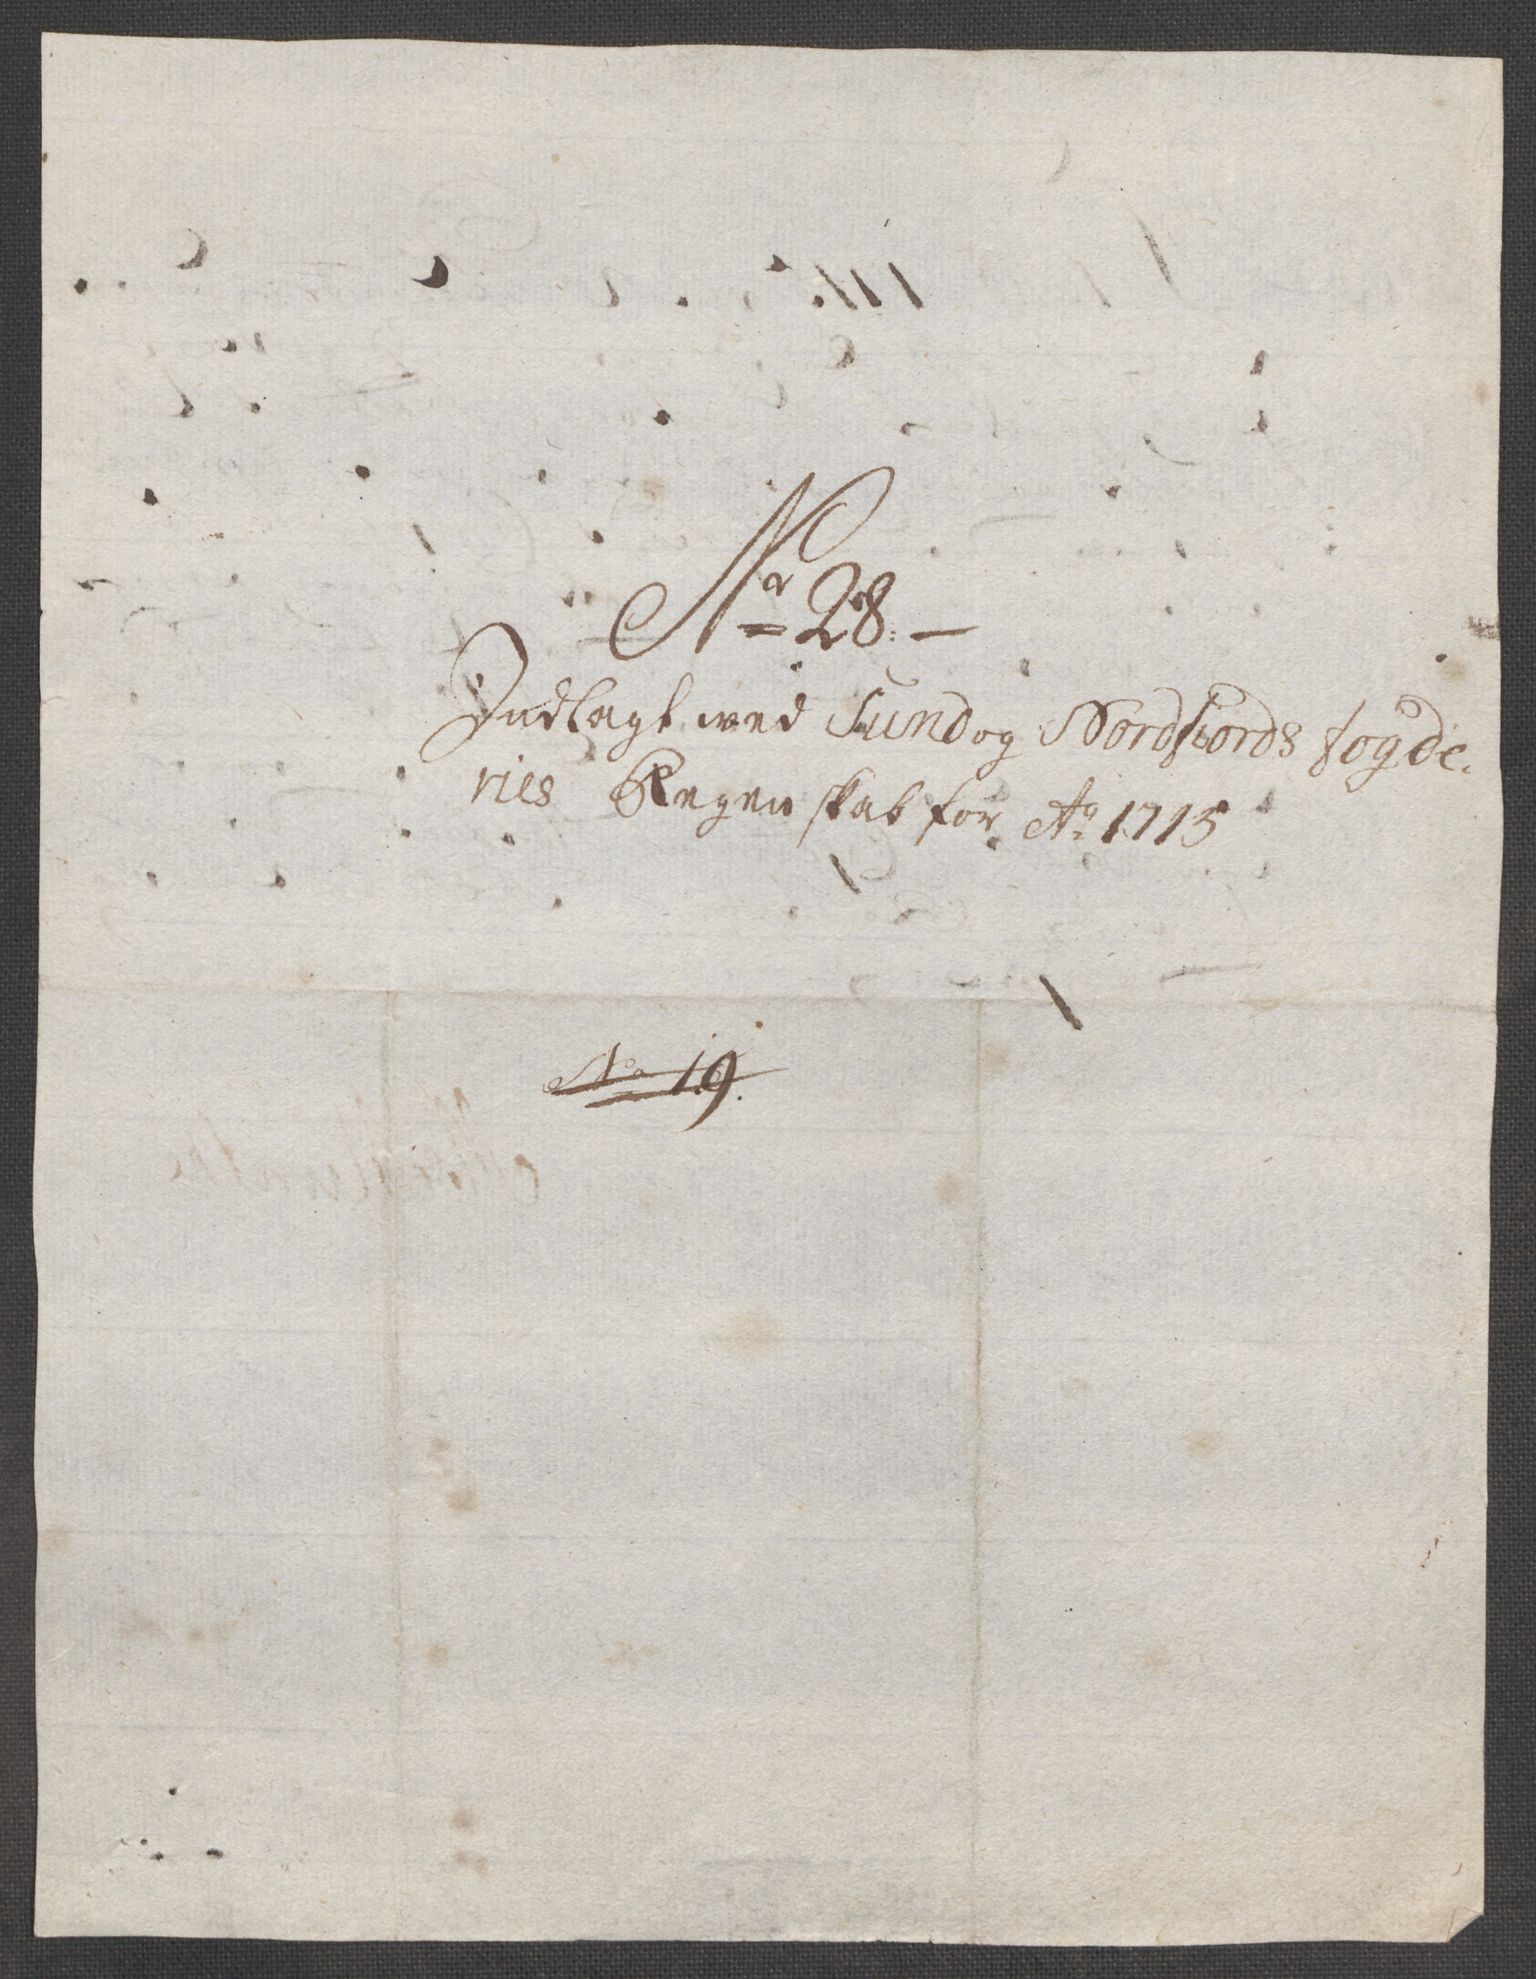 Nr 28. —
Indlagt wed Sund og Nordfiords fogde-
ries Regenskab for Ao 1715
No 19.